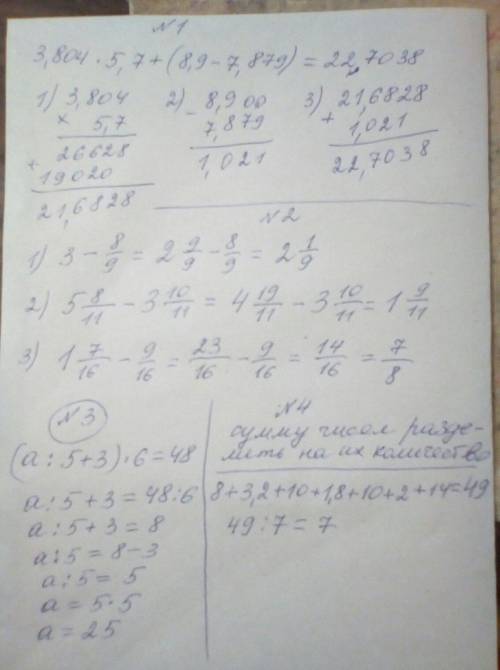 №1
3,804 · 5,7 + (8,9 - 7,879) = 22,7038
1) 3,804
× 5,7
26628
+
19020
21,6828
2) 8,900
- 7,879
1,021
3) 21,6828
+ 1,021
22,7038
№2
1) 3 - 8/9 = 2 9/9 - 8/9 = 2 1/9
2) 5 8/11 - 3 10/11 = 4 19/11 - 3 10/11 = 1 9/11
3) 1 7/16 - 9/16 = 23/16 - 9/16 = 14/16 = 7/8
№3
(a : 5 + 3) · 6 = 48
a : 5 + 3 = 48 : 6
a : 5 + 3 = 8
a : 5 = 8 - 3
a : 5 = 5
a = 5 · 5
a = 25
№4
сумму чисел разде-
лить на их количество
8 + 3,2 + 10 + 1,8 + 10 + 2 + 14 = 49
49 : 7 = 7